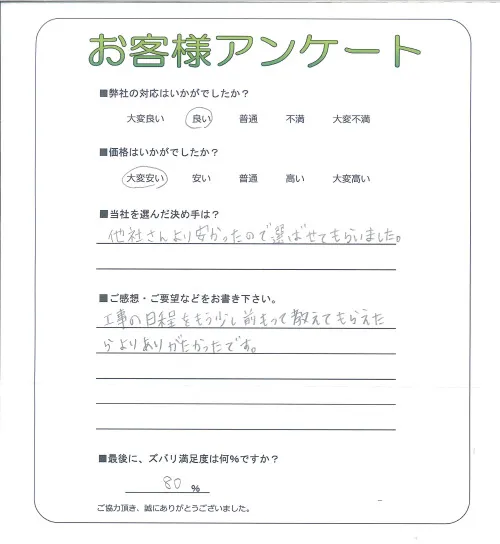 お客様アンケート
■弊社の対応はいかがでしたか？
大変良い 良い 普通 不満 大変不満
■価格はいかがでしたか？
大変安い 安い 普通 高い 大変高い
■当社を選んだ決め手は？
他社さんより安かったので選ばせてもらいました。
■ご感想・ご要望などをお書き下さい。
工事の日程をもう少し前もって教えてもらえた
らよりありがたかったです。
■最後に、ズバリ満足度は何%ですか？
80 %
ご協力頂き、誠にありがとうございました。